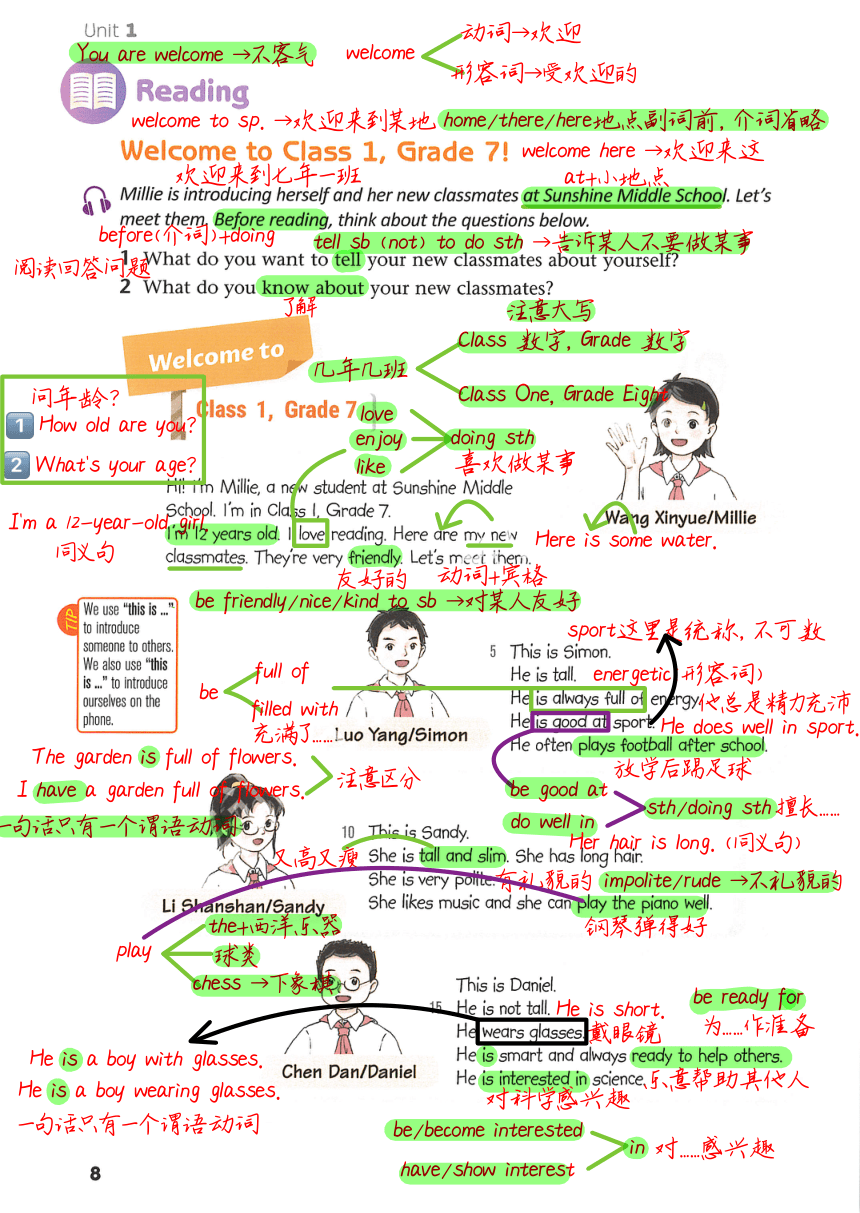 Unit 1
You are welcome →不客气
welcome
动词→欢迎
形容词→受欢迎的
Reading
welcome to sp. →欢迎来到某地 home/there/here地点副词前, 介词省略
Welcome to Class 1, Grade 7! welcome here →欢迎来这
欢迎来到七年一班
at+小地点
Millie is introducing herself and her new classmates at Sunshine Middle School. Let's
meet them. Before reading, think about the questions below.
before(介词)+doing
tell sb (not) to do sth →告诉某人不要做某事
阅读回答问题
1 What do you want to tell your new classmates about yourself?
2 What do you know about your new classmates?
了解
注意大写
Welcome to
Class 1, Grade 7
几年几班
Class 数字, Grade 数字
Class One, Grade Eight
问年龄?
1 How old are you?
2 What's your age?
love
enjoy
like
doing sth
喜欢做某事
Hi! I'm Millie, a new student at Sunshine Middle
School. I'm in Class 1, Grade 7.
I'm 12 years old. I love reading. Here are my new
classmates. They're very friendly. Let's meet them.
I'm a 12-year-old girl
同义句
Wang Xinyue/Millie
Here is some water.
友好的
动词+宾格
be friendly/nice/kind to sb →对某人友好
TIP
We use "this is ..."
to introduce
someone to others.
We also use "this
is ..." to introduce
ourselves on the
phone.
be
full of
filled with
充满了……
Luo Yang/Simon
sport这里是统称, 不可数
5 This is Simon.
He is tall. energetic 形容词)
He is always full of energy 他总是精力充沛
He is good at sport. He does well in sport.
He often plays football after school.
放学后踢足球
The garden is full of flowers.
I have a garden full of flowers.
注意区分
一句话只有一个谓语动词
be good at
do well in
sth/doing sth 擅长……
Her hair is long. (同义句)
10 This is Sandy.
又高又瘦
She is tall and slim. She has long hair.
She is very polite. 有礼貌的 impolite/rude →不礼貌的
She likes music and she can play the piano well.
钢琴弹得好
Li Shanshan/Sandy
play
the+西洋乐器
球类
chess →下象棋
This is Daniel.
15 He is not tall. He is short.
He wears glasses. 戴眼镜
He is smart and always ready to help others.
He is interested in science. 乐意帮助其他人
对科学感兴趣
be ready for
为……作准备
Chen Dan/Daniel
He is a boy with glasses.
He is a boy wearing glasses.
一句话只有一个谓语动词
be/become interested
have/show interest
in 对……感兴趣
8